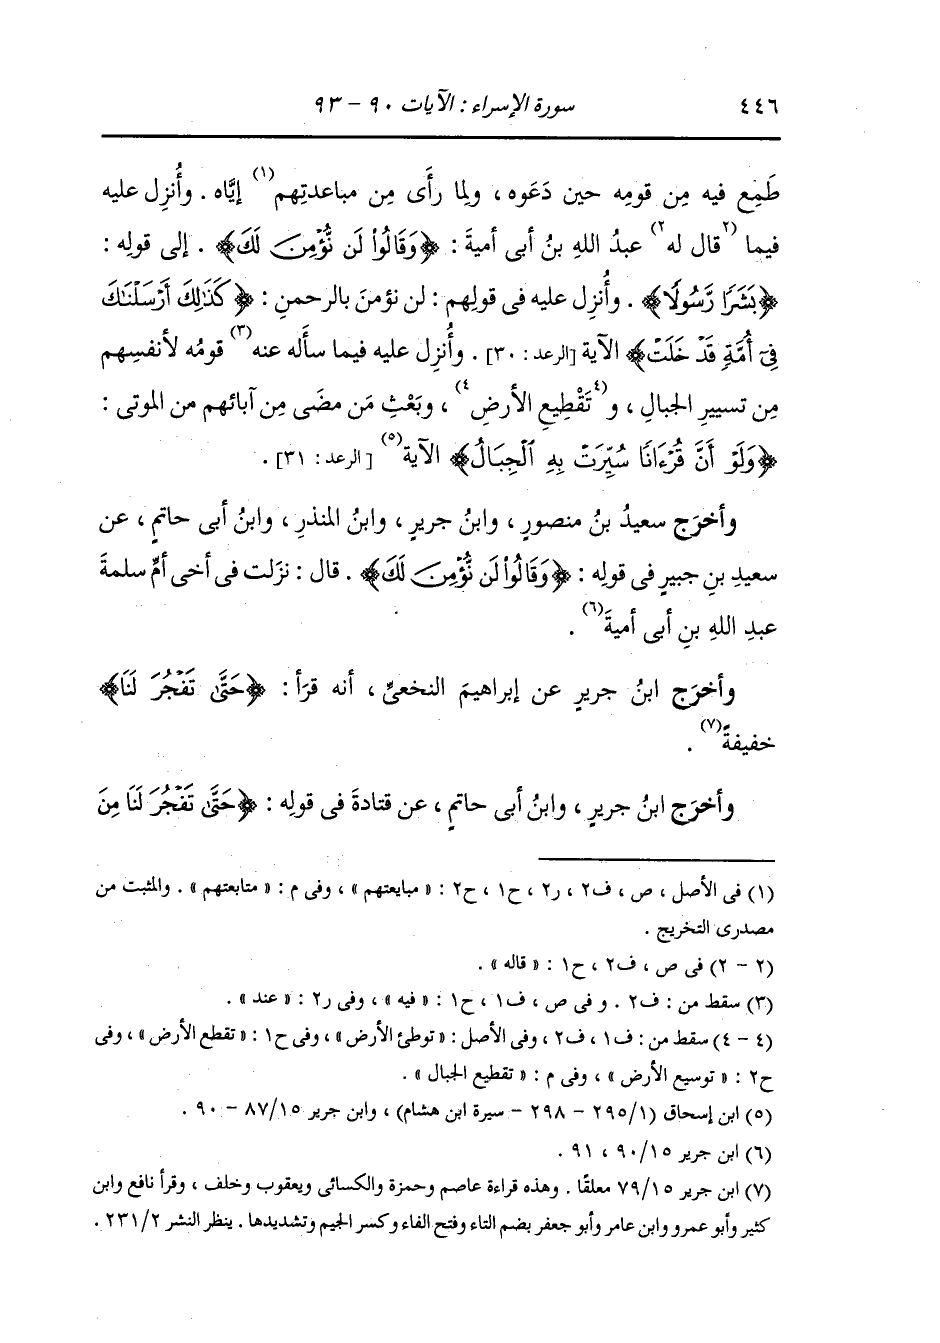 ٤٤٦ سورة الإسراء : الآيات ٩٠ - ٩٣
طَمِع فيه مِن قومِه حين دَعَوه ، ولِما رأَى مِن مباعدتِهم(١) إيَّاه . وأُنزِل عليه
فيما (٢قال له٢) عبدُ اللهِ بنُ أبى أميةَ : ﴿وَقَالُوا۟ لَن نُّؤْمِنَ لَكَ﴾ . إلى قولِه :
﴿بَشَرًا رَّسُولًا﴾ . وأُنزِل عليه فى قولِهم : لن نؤمنَ بالرحمنِ : ﴿كَذَٰلِكَ أَرْسَلْنَـٰكَ
فِىٓ أُمَّةٍ قَدْ خَلَتْ﴾ الآية [الرعد : ٣٠] . وأُنزِل عليه فيما سأَله عنه(٣) قومُه لأنفسِهم
مِن تسييرِ الجبالِ ، و(٤تَقْطِيعِ الأرضِ٤) ، وبَعْثِ مَن مضَى مِن آبائهم من الموتى :
﴿وَلَوْ أَنَّ قُرْءَانًا سُيِّرَتْ بِهِ ٱلْجِبَالُ﴾ الآية(٥) [الرعد : ٣١] .
وأخرَج سعيدُ بنُ منصورٍ ، وابنُ جريرٍ ، وابنُ المنذرِ ، وابنُ أبى حاتمٍ ، عن
سعيدِ بنِ جبيرٍ فى قولِه : ﴿وَقَالُوا۟ لَن نُّؤْمِنَ لَكَ﴾ . قال : نزَلت فى أخى أمِّ سلمةَ
عبدِ اللهِ بنِ أبى أميةَ(٦) .
وأخرَج ابنُ جريرٍ عن إبراهيمَ النخعىِّ ، أنه قرَأ : ﴿حَتَّىٰ تَفْجُرَ لَنَا﴾
خفيفةً(٧) .
وأخرَج ابنُ جريرٍ ، وابنُ أبى حاتمٍ ، عن قتادةَ فى قولِه : ﴿حَتَّىٰ تَفْجُرَ لَنَا مِنَ
(١) فى الأصل ، ص ، ف٢ ، ر٢ ، ح١ ، ح٢ : « مبايعتهم » ، وفى م : « متابعتهم » . والمثبت من
مصدرى التخريج .
(٢ - ٢) فى ص ، ف٢ ، ح١ : « قاله » .
(٣) سقط من : ف٢ . و فى ص ، ف١ ، ح١ : « فيه » ، وفى ر٢ : « عند » .
(٤ - ٤) سقط من : ف١ ، ف٢ ، وفى الأصل : « توطئ الأرض » ، وفى ح١ : « تقطع الأرض » ، وفى
ح٢ : « توسيع الأرض » ، وفى م : « تقطيع الجبال » .
(٥) ابن إسحاق (١/ ٢٩٥ - ٢٩٨ - سيرة ابن هشام) ، وابن جرير ١٥/ ٨٧ - ٩٠ .
(٦) ابن جرير ١٥/ ٩٠ ، ٩١ .
(٧) ابن جرير ١٥/ ٧٩ معلقًا . وهذه قراءة عاصم وحمزة والكسائى ويعقوب وخلف ، وقرأ نافع وابن
كثير وأبو عمرو وابن عامر وأبو جعفر بضم التاء وفتح الفاء وكسر الجيم وتشديدها . ينظر النشر ٢/ ٢٣١ .